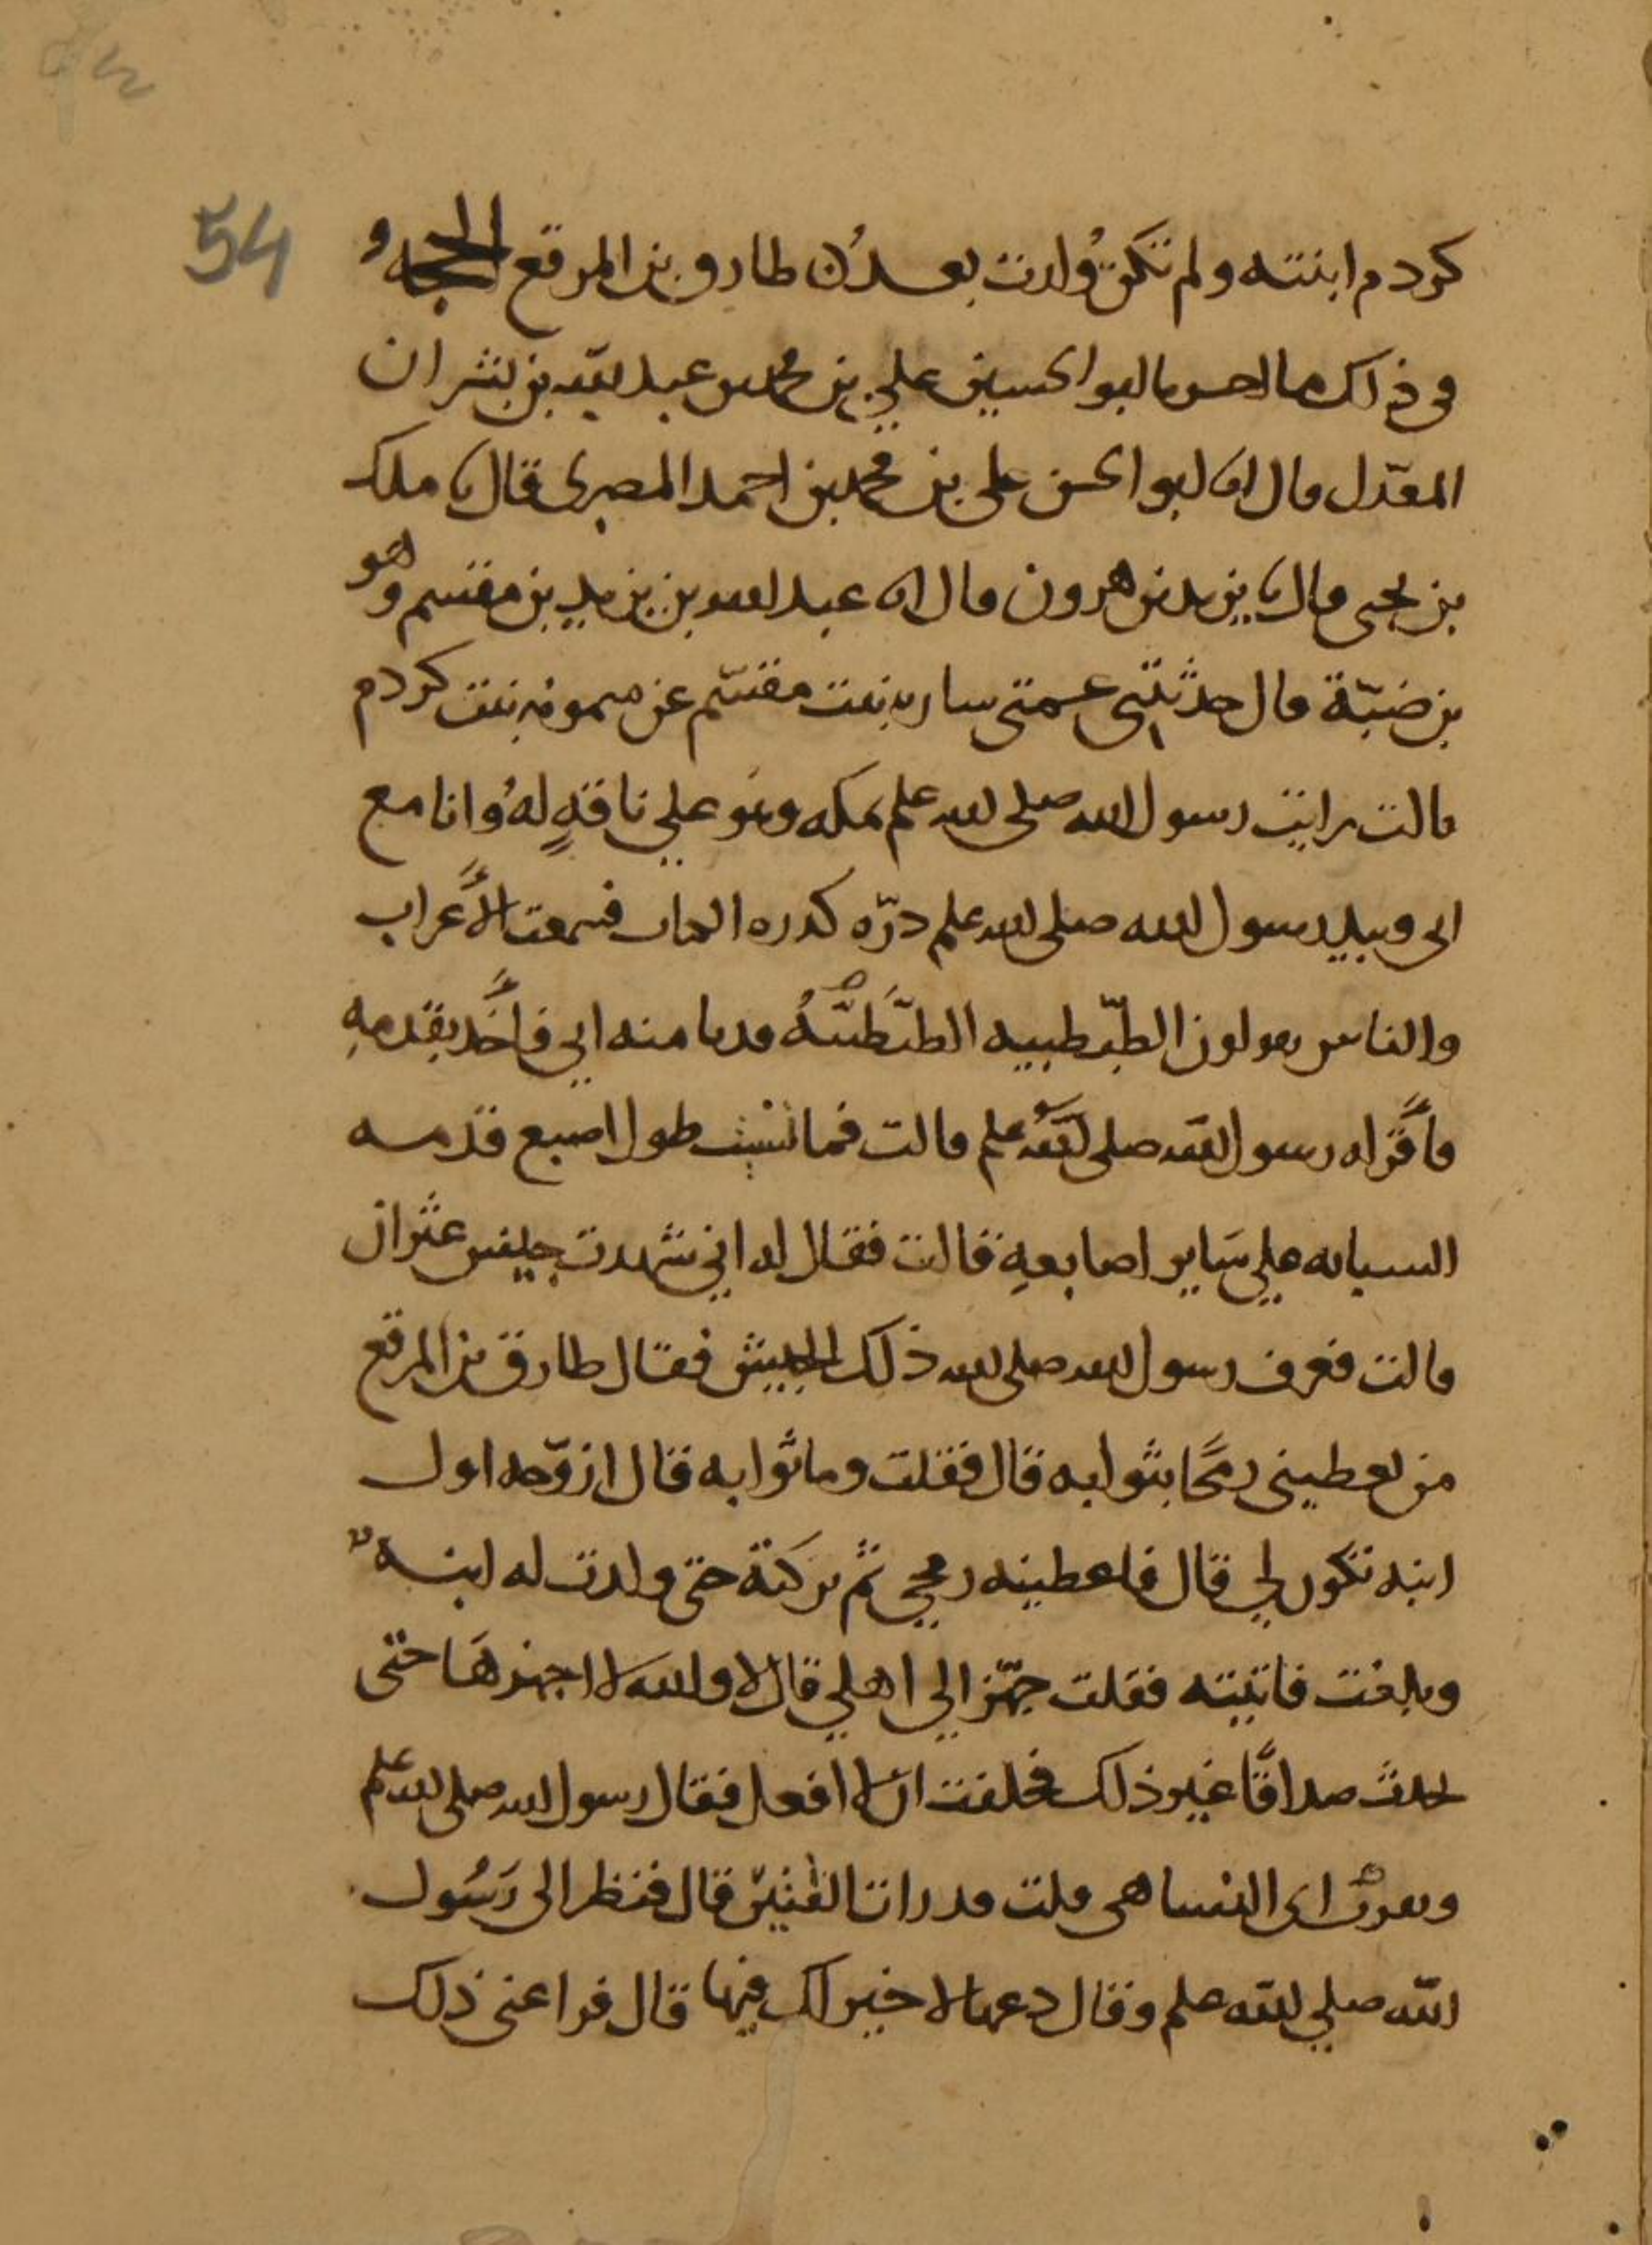 54
كردم ابنته ولم تكن ولدت بعد ان طارق بن المرقع الحجه
في ذلك ما ابو الحسين علي بن محمد بن عبد الله بن بشران
المعدل قال انا ابو الحسن علي بن محمد بن احمد المصري قال نا ملك
بن يحيى قال نا يزيد بن هرون قال انا عبد الله بن يزيد بن مقسم وهو
بن ضبة قال حدثتني عمتي سارة بنت مقسم عن ميمونه بنت كردم
قالت رايت رسول الله صلى الله علم بمكه وهو علي ناقةٍ لهُ وانا مع
ابي وبيد رسول الله صلى الله علم درّه كدره الكتاب فسمعت الأعراب
والناس يقولون الطبّطبيه الطبَّطبَّيهُ فدنا منه ابي فأخذ بقدمهِ
فأقرّ له رسول الله صلى الله علم قالت فما نسيت طول اصبع قدمه
السبابه علي سَاير اصابعهِ قالت فقال له اني شهدت جيش عثران
قالت فعرف رسول الله صلى الله ذلك الجيش فقال طارق بن المرقع
من يعطيني رمحًا بثوابه قال فقلت وما ثوابه قال ازوّجه اول
ابنه تكون لي قال فاعطيته رمحي ثم تركتة حتى ولدت له ابنه
وبلغت فاتيته فقلت جهّز الي اهلي قال لا والله لا اجهزهَا حتى
تحدث صداقًا غير ذلك فحلفت ان لا افعل فقال رسول الله صلى الله علم
وبقرن اي النسا هي قلت قد رات القتيرَ قال فنظر الى رَسُول
الله صلي الله علم وقال دعها لا خير لك فيها قال فراعني ذلك